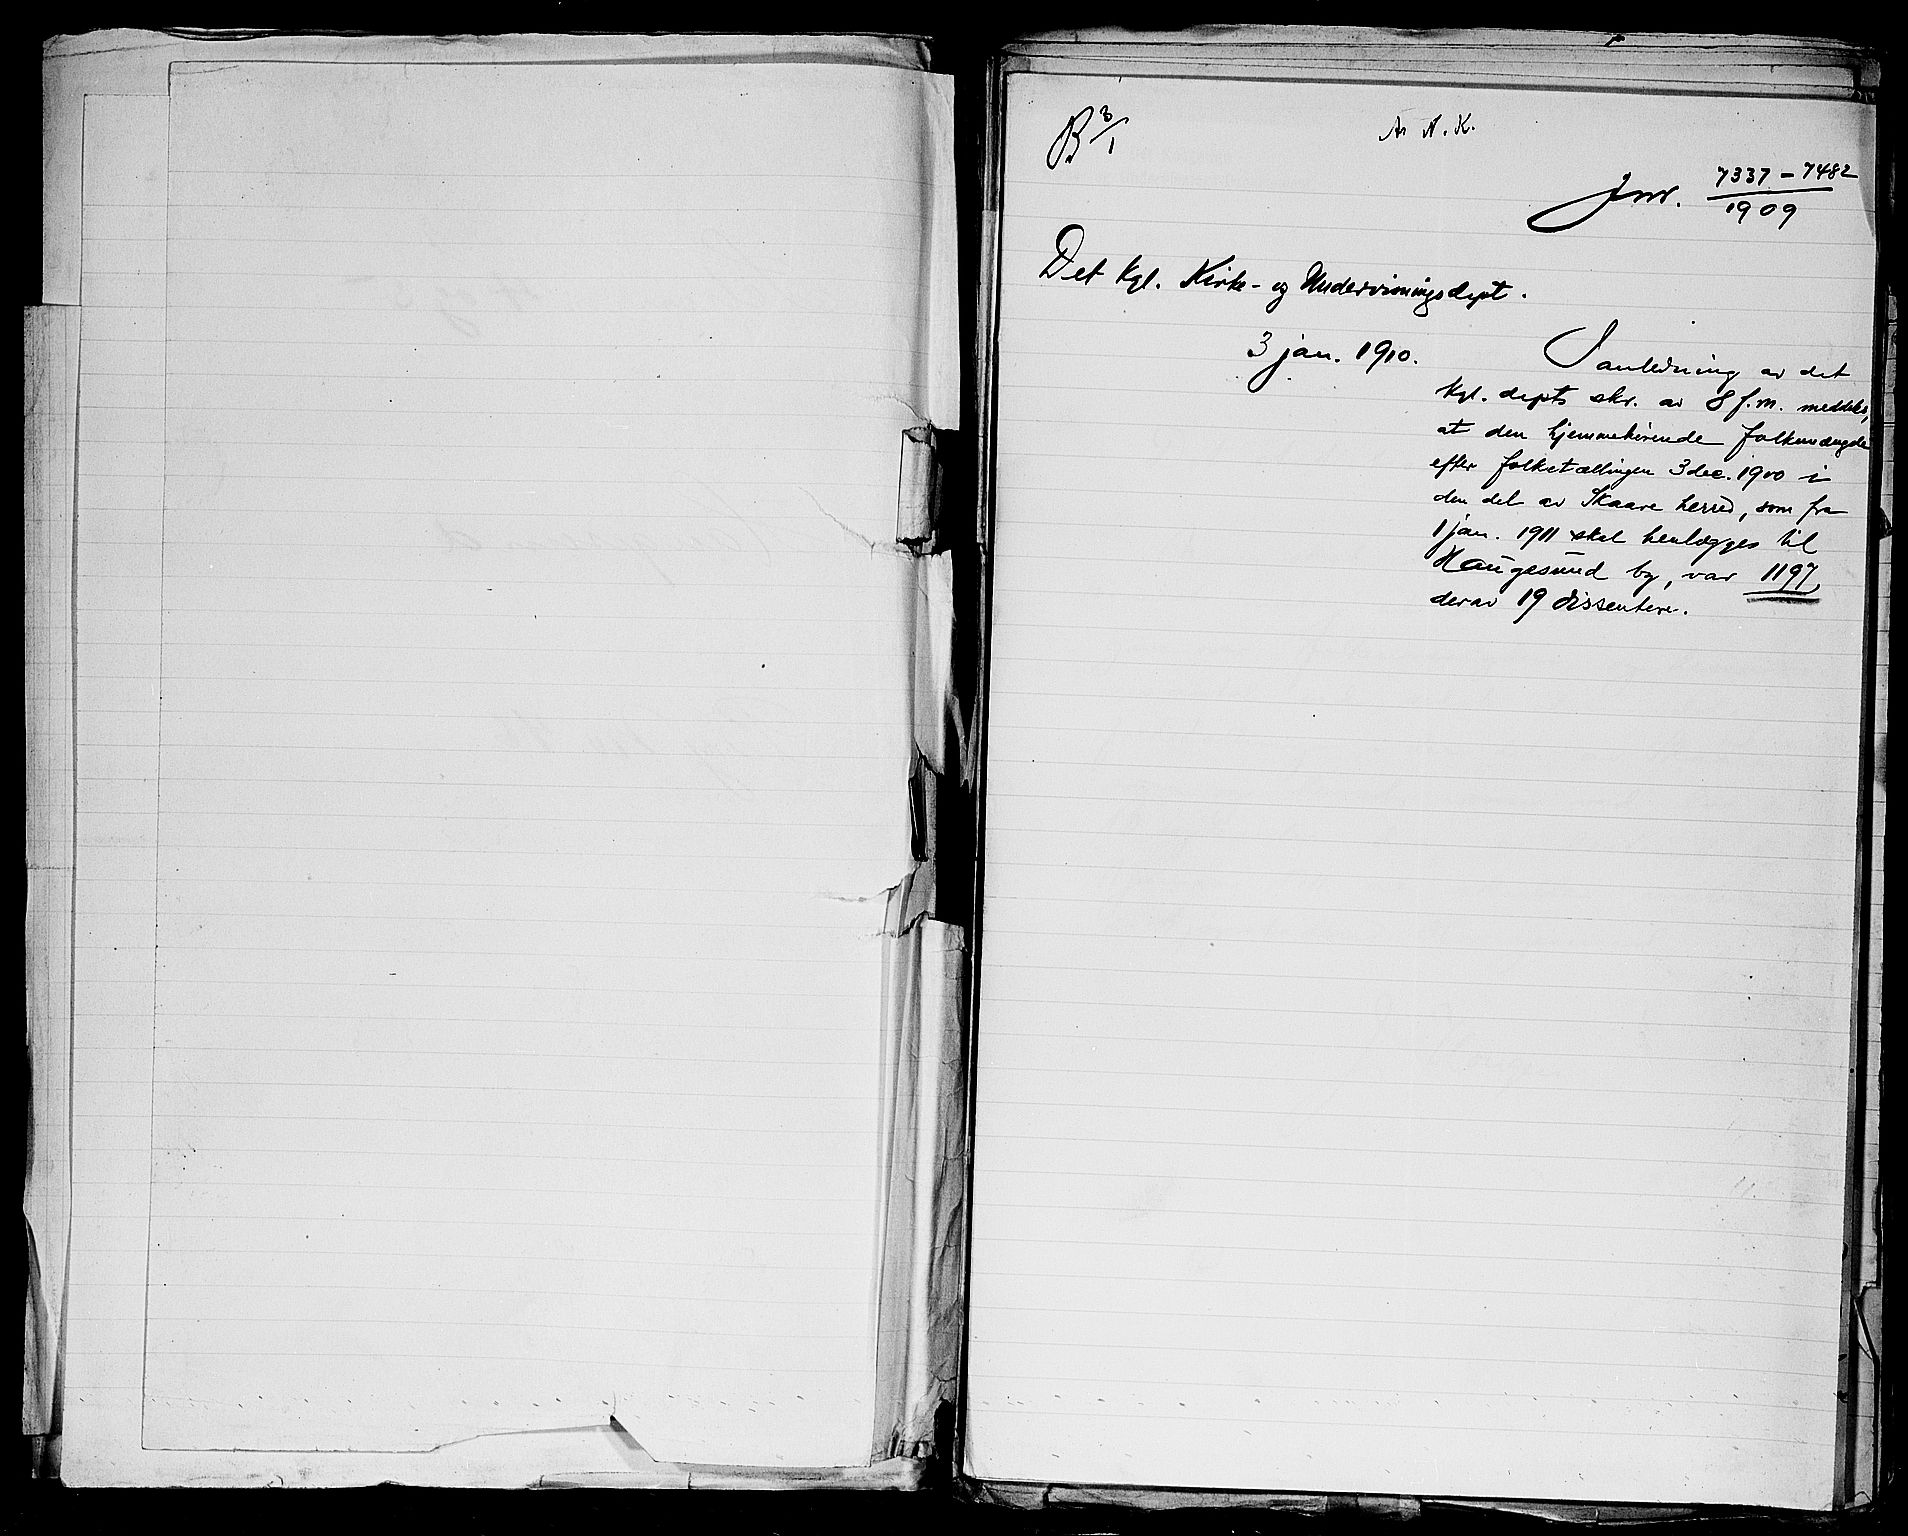 B 3/1
A. N. K.
Jnr. 7337 – 7482
1909
Det kgl. Kirke- og Undervisningsdept.
3 jan. 1910.
I anledning av det
kgl. depts skr. av 8 f.m. meddeles,
at den hjemmehørende folkemængde
efter folketællingen 3 dec. 1900 i
den del av Skaare herred, som fra
1 jan. 1911 skal henlægges til
Haugesund by, var 1197,
derav 19 dissentere.